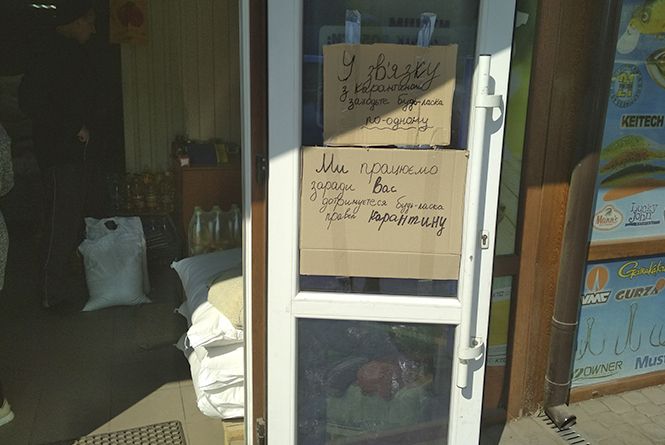 У зв'язку
з карантином
заходьте будь-ласка
по-одному
Ми працюємо
заради Вас
дотримуєтеся будь-ласка
правил карантину
KEITECH
Mann's
Lucky
John
Gamakatsu
VMC
GURZA
OWNER